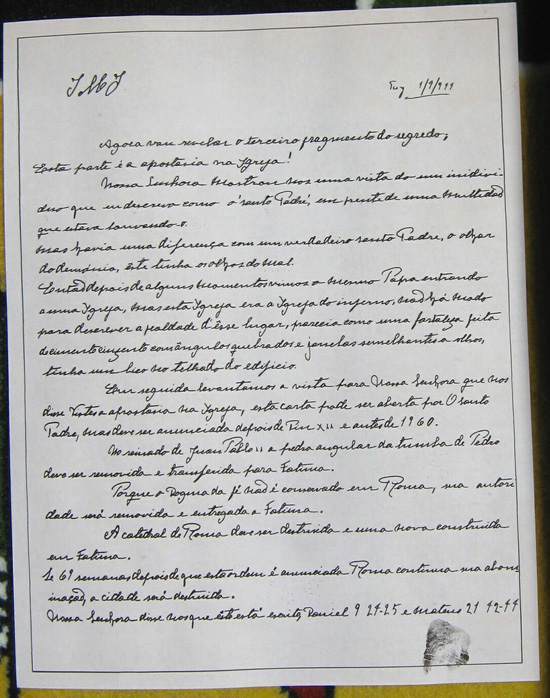 JMJ
Tuy 1/9/944
Agora vou revelar o terceiro fragmento do segredo;
Esta parte é a apostasia na Igreja!
Nossa Senhora mostrou nos uma vista do um individi
duo que eu descrevo como o 'santo Padre', em frente de uma multidaõ
que estava louvando o.
Mas havia uma diferença com um verdadeiro santo Padre, o olhar
do demónio, êste tinha os olhos do Mal.
Entaõ depois de alguns momentos vimos o mesmo Papa entrando
a uma Igreja, mas esta Igreja era a Igreja do inferno, naõ há modo
para descrever a fealdade d'êsse lugar, parecia como uma fortaleza feita
de cimento cinzento com ângulos quebrados e janelas semelhantes a olhos,
tinha um bico no telhado do edificio.
Em seguida levantamos a vista para Nossa Senhora que nos
disse Vistes a apostasia na Igreja, esta carta pode ser aberta por O santo
Padre, mas deve ser anunciada depois de Pio XII e antes de 1960.
No reinado de Juan Pablo II a pedra angular da tumba de Pedro
deve ser removida e transferida para Fatima.
Porque o dogma da fé naõ é conservado em Roma, sua autori
dade será removida e entregada a Fatima.
A catedral de Roma deve ser destruida e uma nova construida
em Fatima.
Se 69 semanas depois de que esta ordem é anunciada Roma continua sua abom
inaçaõ, a cidade será destruida.
Nossa Senhora disse nos que êste está escrito, Daniel 9 24-25 e Mateus 21 42-44